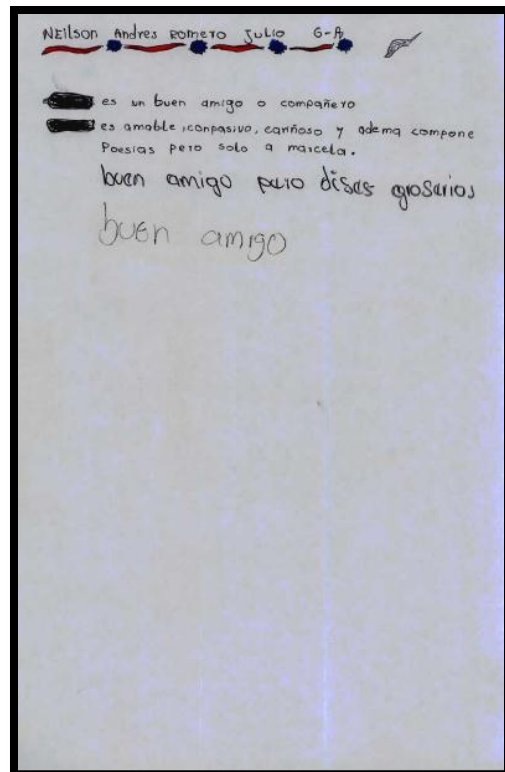 NEilson Andres Romero Julio 6-A
es un buen amigo o compañero
es amable, conpasivo, cariñoso y adema compone
Poesias pero solo a marcela.
buen amigo pero dises groserias
buen amigo